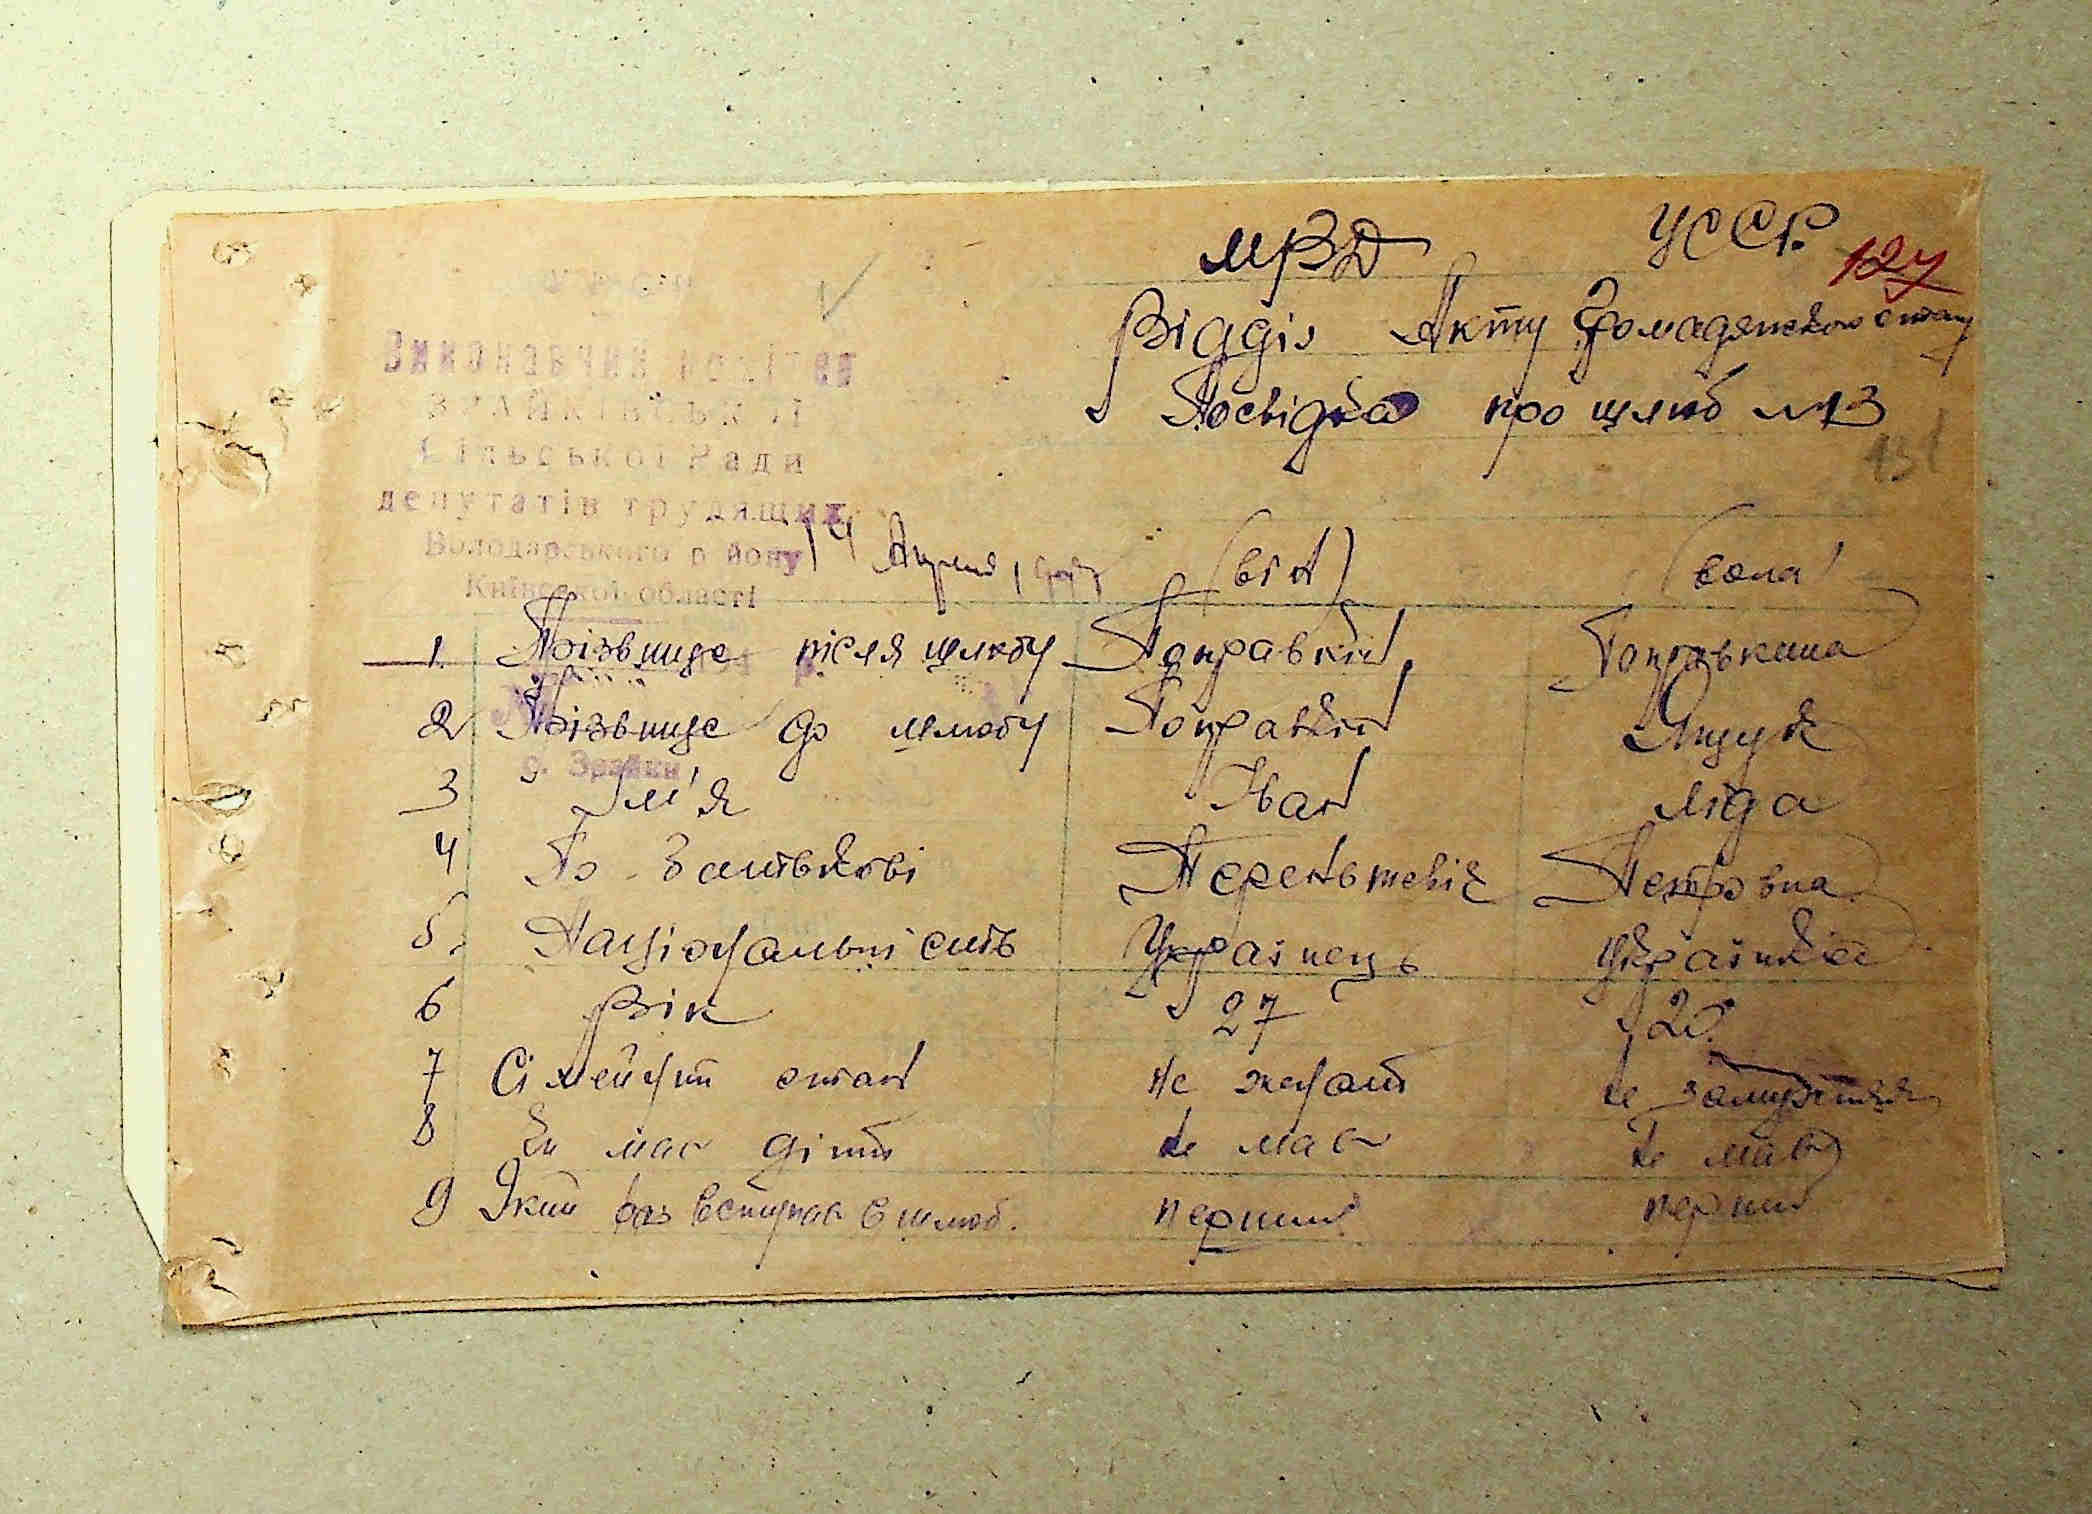 МВД УССР.
127
Відділ Акту Громадянського стану
Посвідка про шлюб №13
131
УРСР
Виконавчий комітет
ЗРАЙКІВСЬКОЇ
Сільської Ради
депутатів трудящих
Володарського району
Київської області
с. Зрайки
14 Апреля (він) (вона)
1. Прізвище після шлюбу Поправкін Поправкина
2 Прізвище до шлюбу Поправкін Яцук
3 Ім'я Іван Ліда
4 По батькові Терентьевіч Петровна
5. Національність Українець Українка
6 Вік 27 20.
7 Сімейний стан не жонат не замужняя
8 Чи має діти не має не має
9 Який раз вступає в шлюб. перший перший